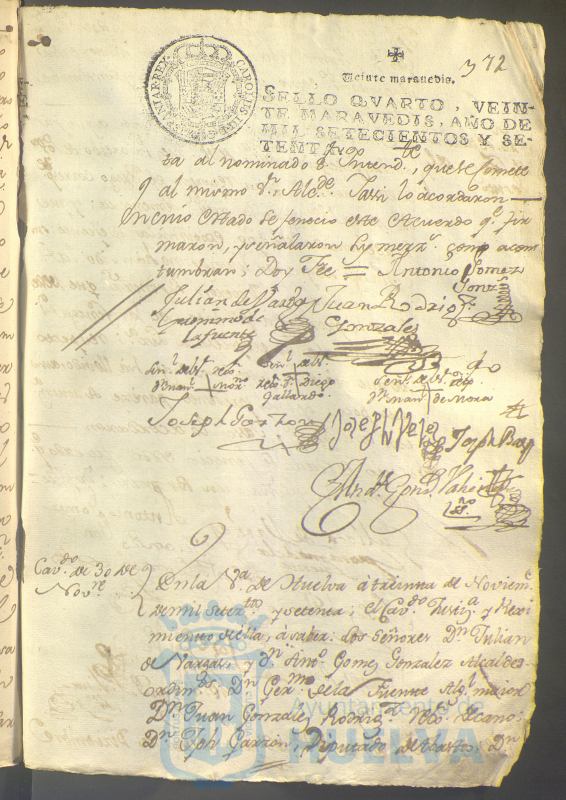 372
CAROLUS III
Veinte maravedis.
SELLO QVARTO, VEIN-
TE MARAVEDIS, AÑO DE
MIL SETECIENTOS Y SE-
TENTA
ta al nominado Sr. Intend.te, que se somete
al mismo Sr. Alc.de Tassi lo acordaron
En cuio estado se fenecio este Acuerdo q.e fir
maron, y señalaron sus mrzd.s como acos
tumbran; Doy Fee = Antonio Gomez
Gonz.z
Julian de Vargas Juan Rodrig.z
Geronimo de Gonzales
la fuente
Señ.l de Dn. Señ.l de Dn. Señ.l de Dn.
Diego
Gallardo de Mora
Joseph Garzon Joseph Velo Joseph
And.s Gonz.z Valiente
Ss.no
Cav.do de 30 de
Nov.re
En la V.a de Huelva à treinta de Noviem.e
de mil Setez.tos y setenta; el Cav.do Justiz.a y Rexi
miento de ella, à saber: Los Señores Dn. Julian
de Vargas, y Dn. Ant.o Gomez Gonzalez Alcaldes
ordin.os Dn. Ger.mo de la Fuente Alg.l maior
Dn. Juan Gonzalez Rodrig.z Rex.or Decano:
Dn. Jph Garzon, Diputado de Abastos; Dn.
Ayuntamiento de
HUELVA